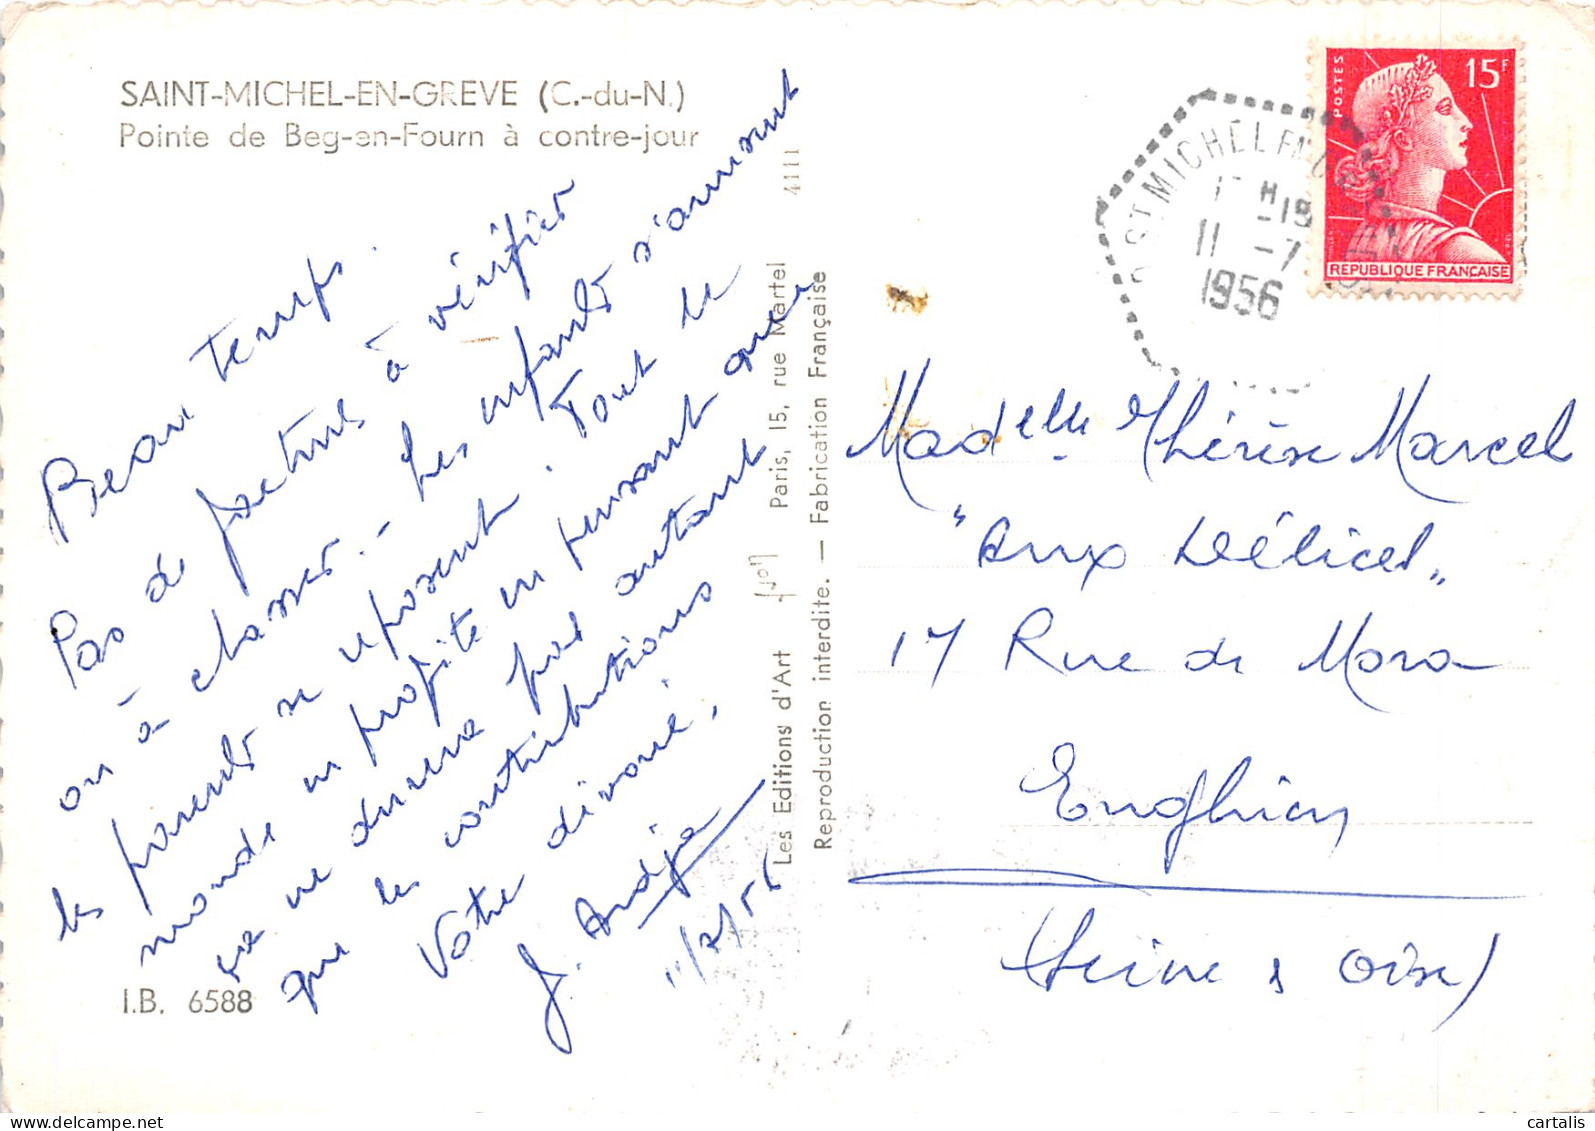 SAINT-MICHEL-EN-GREVE (C.-du-N.)
Pointe de Beg-en-Fourn à contre-jour
Beau temps.
Pas de facture à vérifier
ou à chasser. - Les enfants s'amusent
les parents se reposent! Tout le
monde en profite en pensant que
ne donne pas autant
que les contributions
Votre dévoué,
J. Andja
11/7/56
I.B. 6588
Les Editions d'Art
Paris, 15, rue Martel
4111
Reproduction interdite. — Fabrication Française
POSTES
15F
REPUBLIQUE FRANÇAISE
ST MICHEL EN GR
H
-18
11 -7
1956
Madelle Thérèse Marcel
"Aux Délices"
17 Rue de Mora
Enghien
(Seine & Oise)
cartalis
delcampe.net